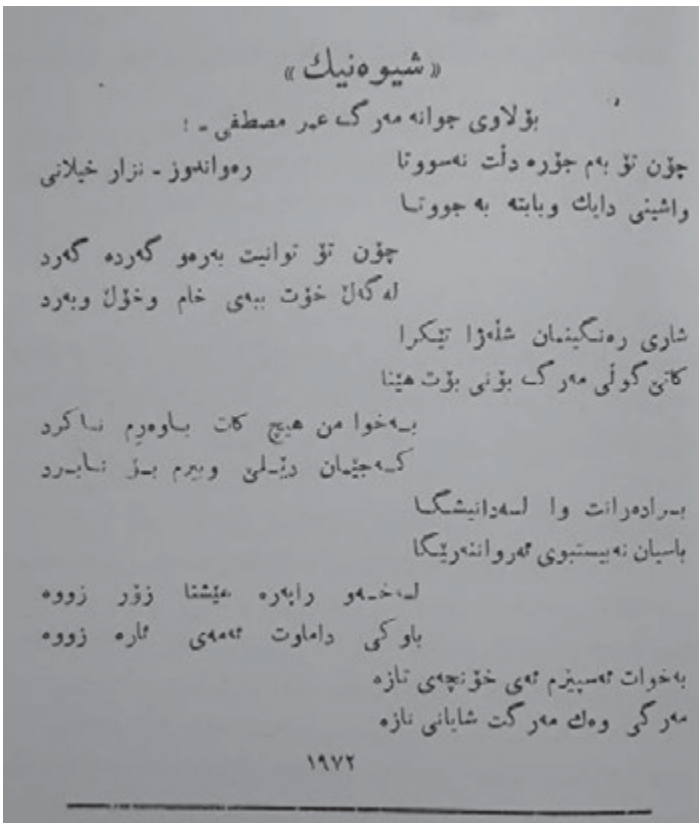 «شیوەنیك»
بۆلاوی جوانە مەرگ عمر مصطفی - :
چۆن تۆ بەم جۆرە دڵت نەسووتا
رەواندوز - نزار خیلانی
واشینی دایك وبابتە بە جووتا
چۆن تۆ توانیت بەرەو گەردە گەرد
لەگەڵ خۆت ببەی خام وخۆڵ وبەرد
شاری رەنگینمان شڵەژا تێکرا
کاتێ گوڵی مەرگ بۆنی بۆت هێنا
بەخوا من هیچ کات باوەرم ناکرد
کەجێمان دێڵێ وبیرم بۆ نابرد
برادەرانت وا لەدانیشگا
باسیان نەبیستبوی ئەرواننەرێگا
لەخەو راپەرە عێشتا زۆر زووە
باوکی داماوت ئەمەی ئارە زووە
بەخوات ئەسپێرم ئەی خۆنچەی تازە
مەرگی وەك مەرگت شایانی نازە
١٩٧٢